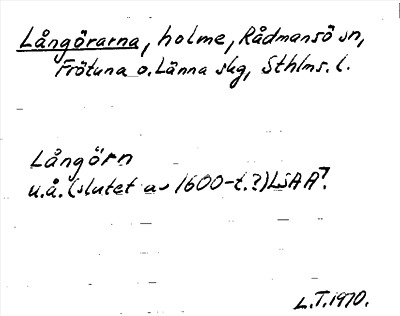 Långörarna, holme, Rådmansö sn,
Frötuna o. Länna skg, Sthlms. l.
Långörn
u.å. (slutet av 1600-t.?) LSA A7.
L.T. 1970.